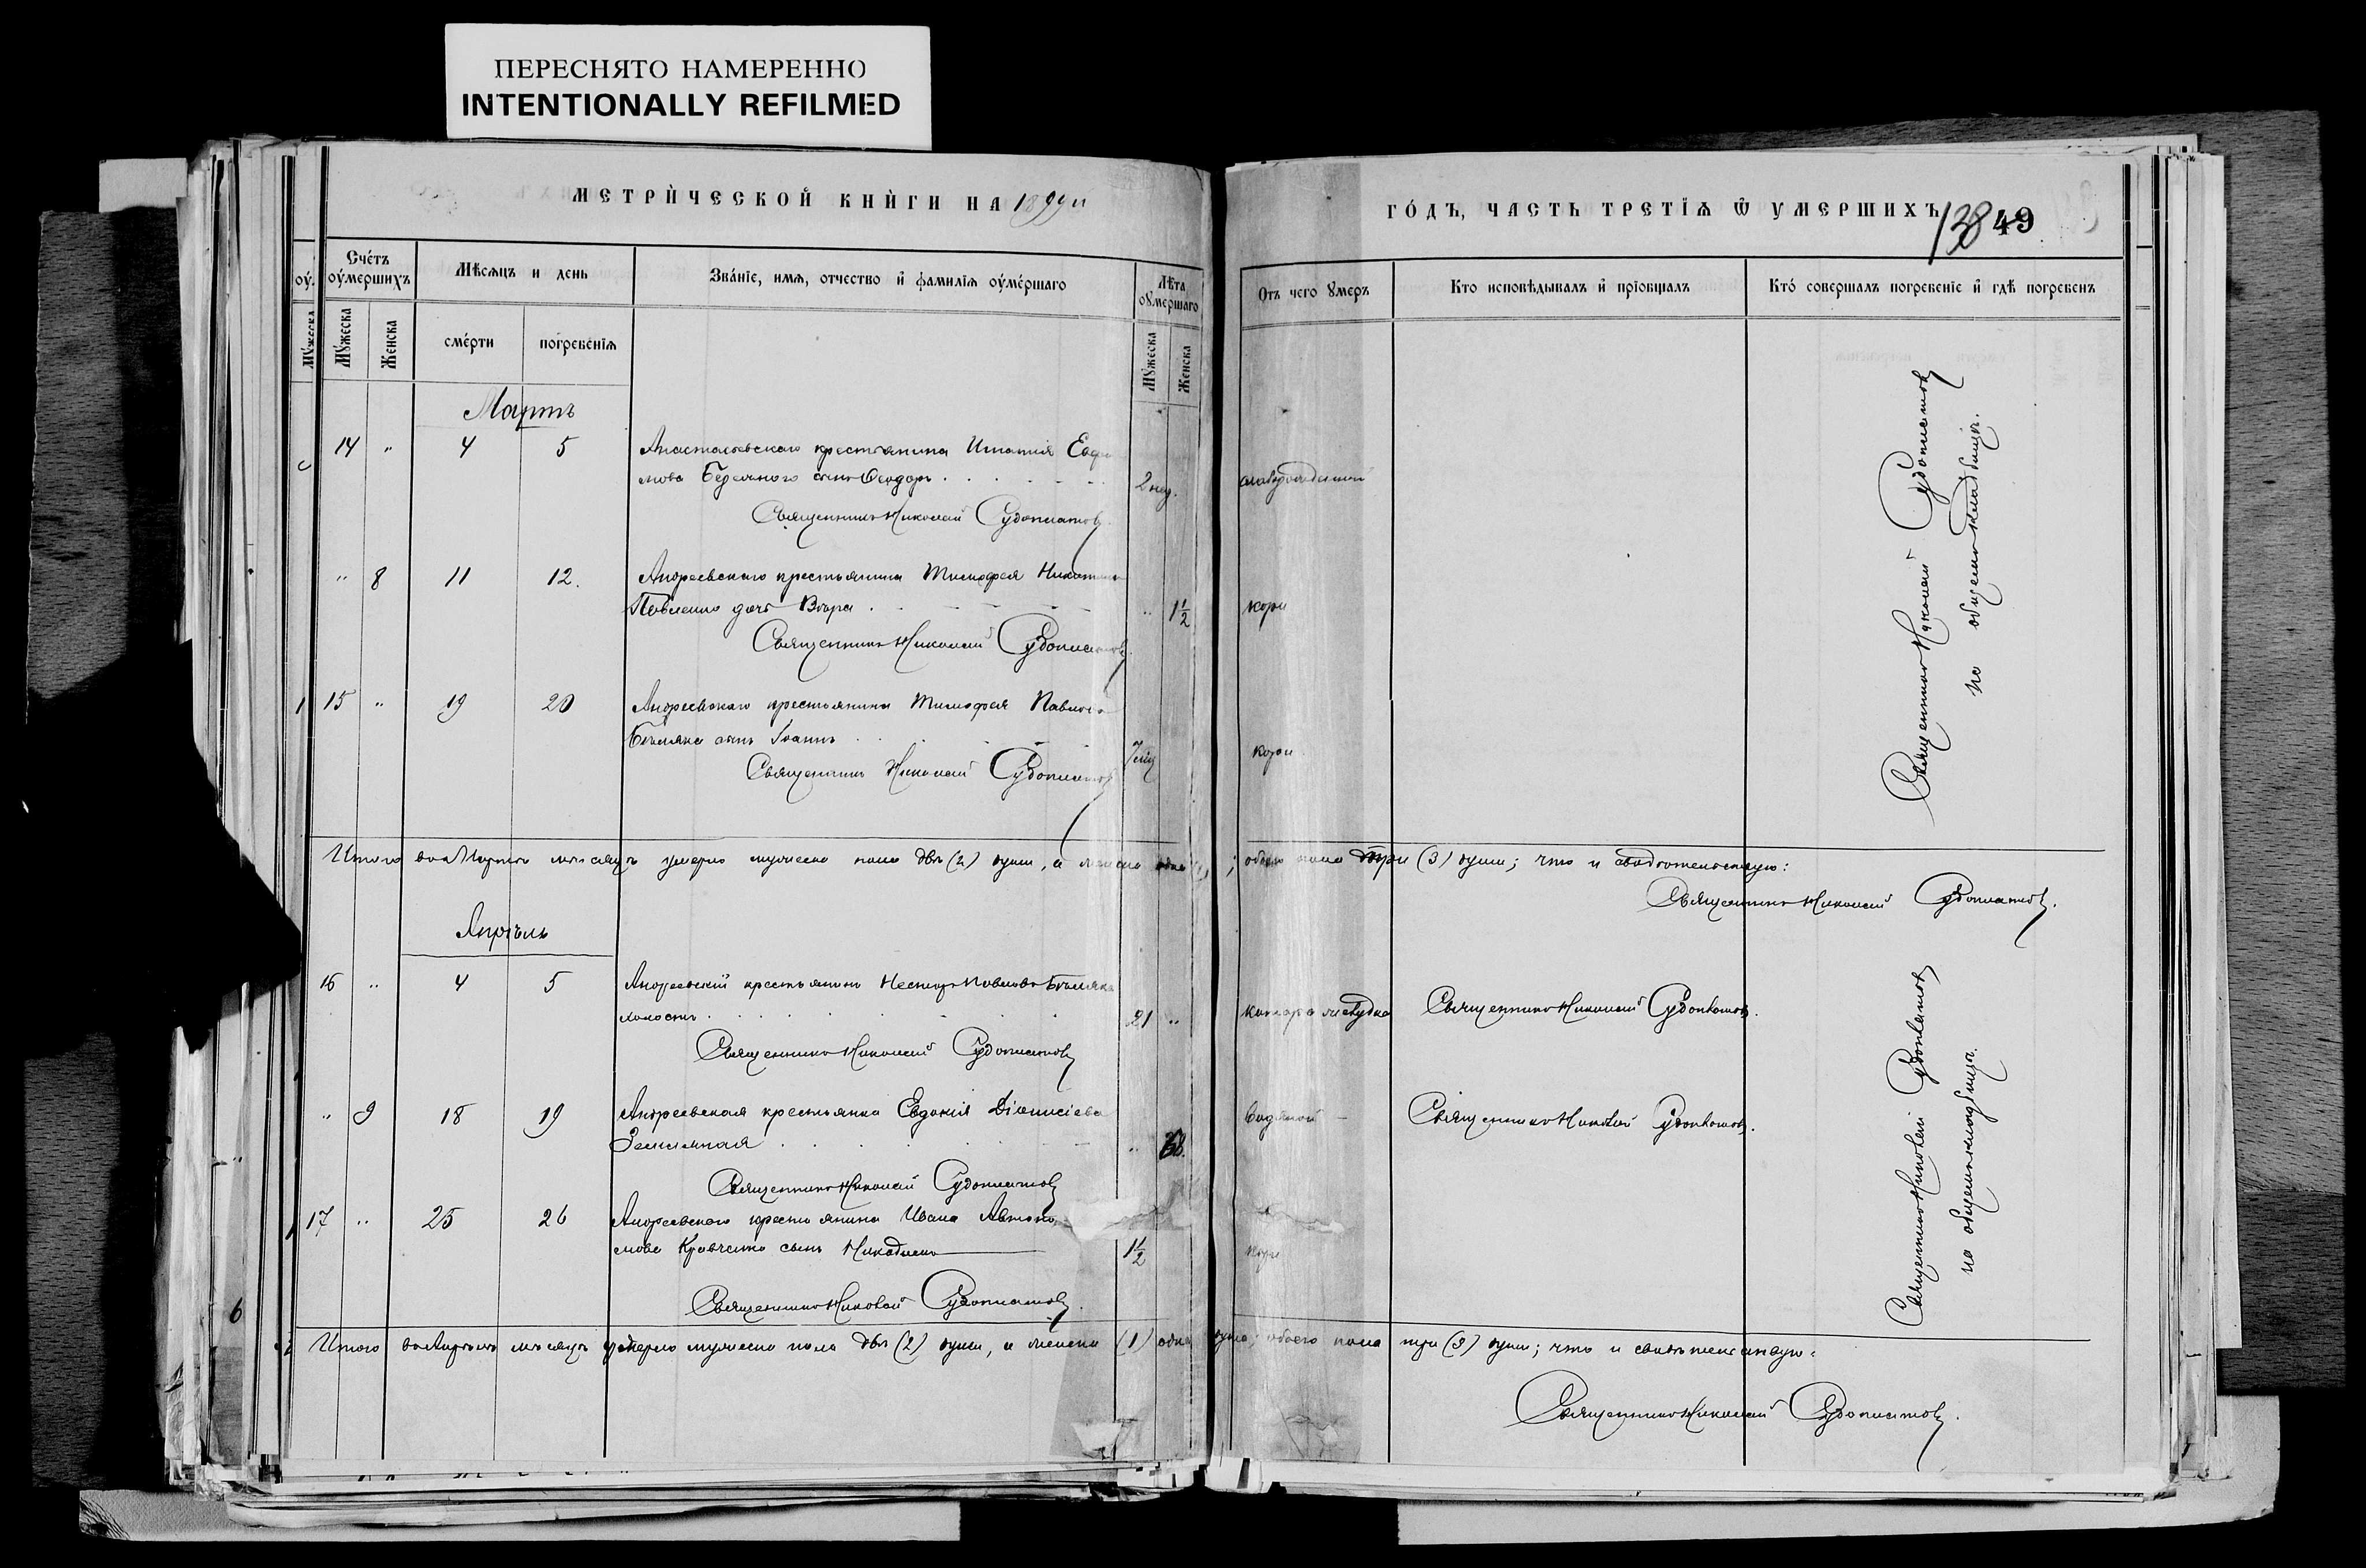 ПЕРЕСНЯТО НАМЕРЕННО
INTENTIONALLY REFILMED
МЕТРИЧЕСКОЙ КНИГИ НА 1899й
оу.
Счетъ оумершихъ
Мѣсяцъ и день
Званіе, имя, отчество и фамилія оумершаго
Лѣта оумершаго
Мужеска
Мужеска
Женска
смерти
погребенія
Мужеска
Женска
Мартъ
14 " 4 5 Анастасьевскаго крестьянина Игнатія
мова сынъ Ѳеодоръ 2 нед.
Священникъ Николай Судоплатовъ
" 8 11 12. Андреевскаго крестьянина Тимофея
Павленко дочь Вѣра " 1½
Священникъ Николай Судоплатовъ
15 " 19 20 Андреевскаго крестьянина Тимофея Павлова
Бѣляка сынъ Іоаннъ
Священникъ Николай Судоплатовъ
Итого въ Мартѣ мѣсяцѣ умерло мужеска пола двѣ (2) души, а женска одна (1)
Апрѣль
16 " 4 5 Андреевскій крестьянинъ Несторъ Павловъ Бѣляка
холостъ 21 "
Священникъ Николай Судоплатовъ
" 9 18 19 Андреевская крестьянка Евдокія Діонисіева
Землянная " 68.
Священникъ Николай Судоплатовъ
17 " 25 26 Андреевскаго крестьянина Ивана Автоно-
мова Кравченко сынъ Никодимъ 1½
Священникъ Николай Судоплатовъ
Итого въ Апрѣлѣ мѣсяцѣ умерло мужеска пола двѣ (2) души, а женска (1) одна
ГОДЪ, ЧАСТЬ ТРЕТІЯ Ѿ УМЕРШИХЪ
138 49
Отъ чего умеръ
Кто исповѣдывалъ и пріобщалъ
Кто совершалъ погребеніе и гдѣ погребенъ
кори
кори
Священникъ Николай Судоплатовъ
на общемъ кладбищѣ.
; обоего пола три (3) души; что и свидѣтельствую:
Священникъ Николай Судоплатовъ.
катара желудка Священникъ Николай Судоплатовъ.
водяной Священникъ Николай Судоплатовъ.
кори
Священникъ Николай Судоплатовъ
на общемъ кладбищѣ.
душа; обоего пола три (3) души; что и свидѣтельствую:
Священникъ Николай Судоплатовъ.